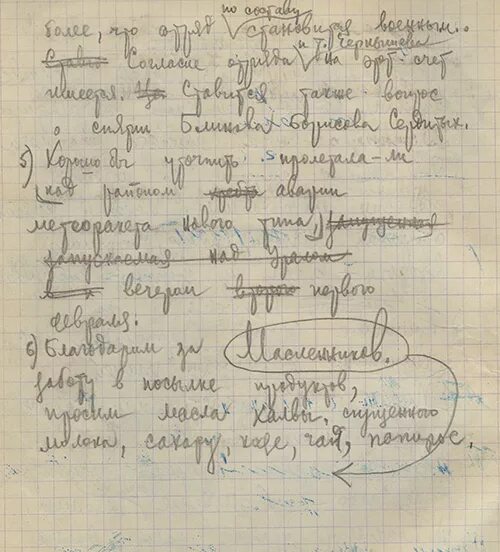 по составу
более, что отряд становится военным.
и т. Чернышева
Ставится Согласие отряда на этот счет
имеется. Ставится также вопрос
о снятии Блинова Борисова Сердитых.
5) Хорошо бы уточнить пролетала-ли
над районом аварии
метеоракета нового типа, запущенная
запускаемая над Уралом
вечером второго первого
февраля.
6) Благодарим за Масленников.
заботу в посылке продуктов,
просим масла халвы, сгущенного
молока, сахару, кофе, чай, папирос,